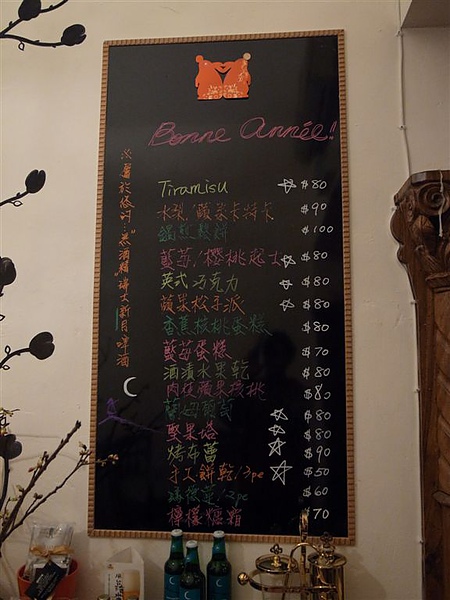 Bonne Année!
Tiramisu ☆ $80
水梨/蘋果卡特卡 $90
鬆餅 $100
藍莓/櫻桃起士 ☆ $80
英式巧克力 ☆ $80
蘋果松子派 ☆ $80
香蕉核桃蛋糕 $80
藍莓蛋糕 $70
酒漬水果乾 $80
肉桂蘋果核桃 $80
蘭姆葡萄 ☆ $80
堅果塔 ☆ $80
烤布蕾 ☆ $90
手工餅乾/3pc ☆ $50
瑪德蓮/2pc $60
檸檬糖霜 $70
酒精 瑞士新月啤酒